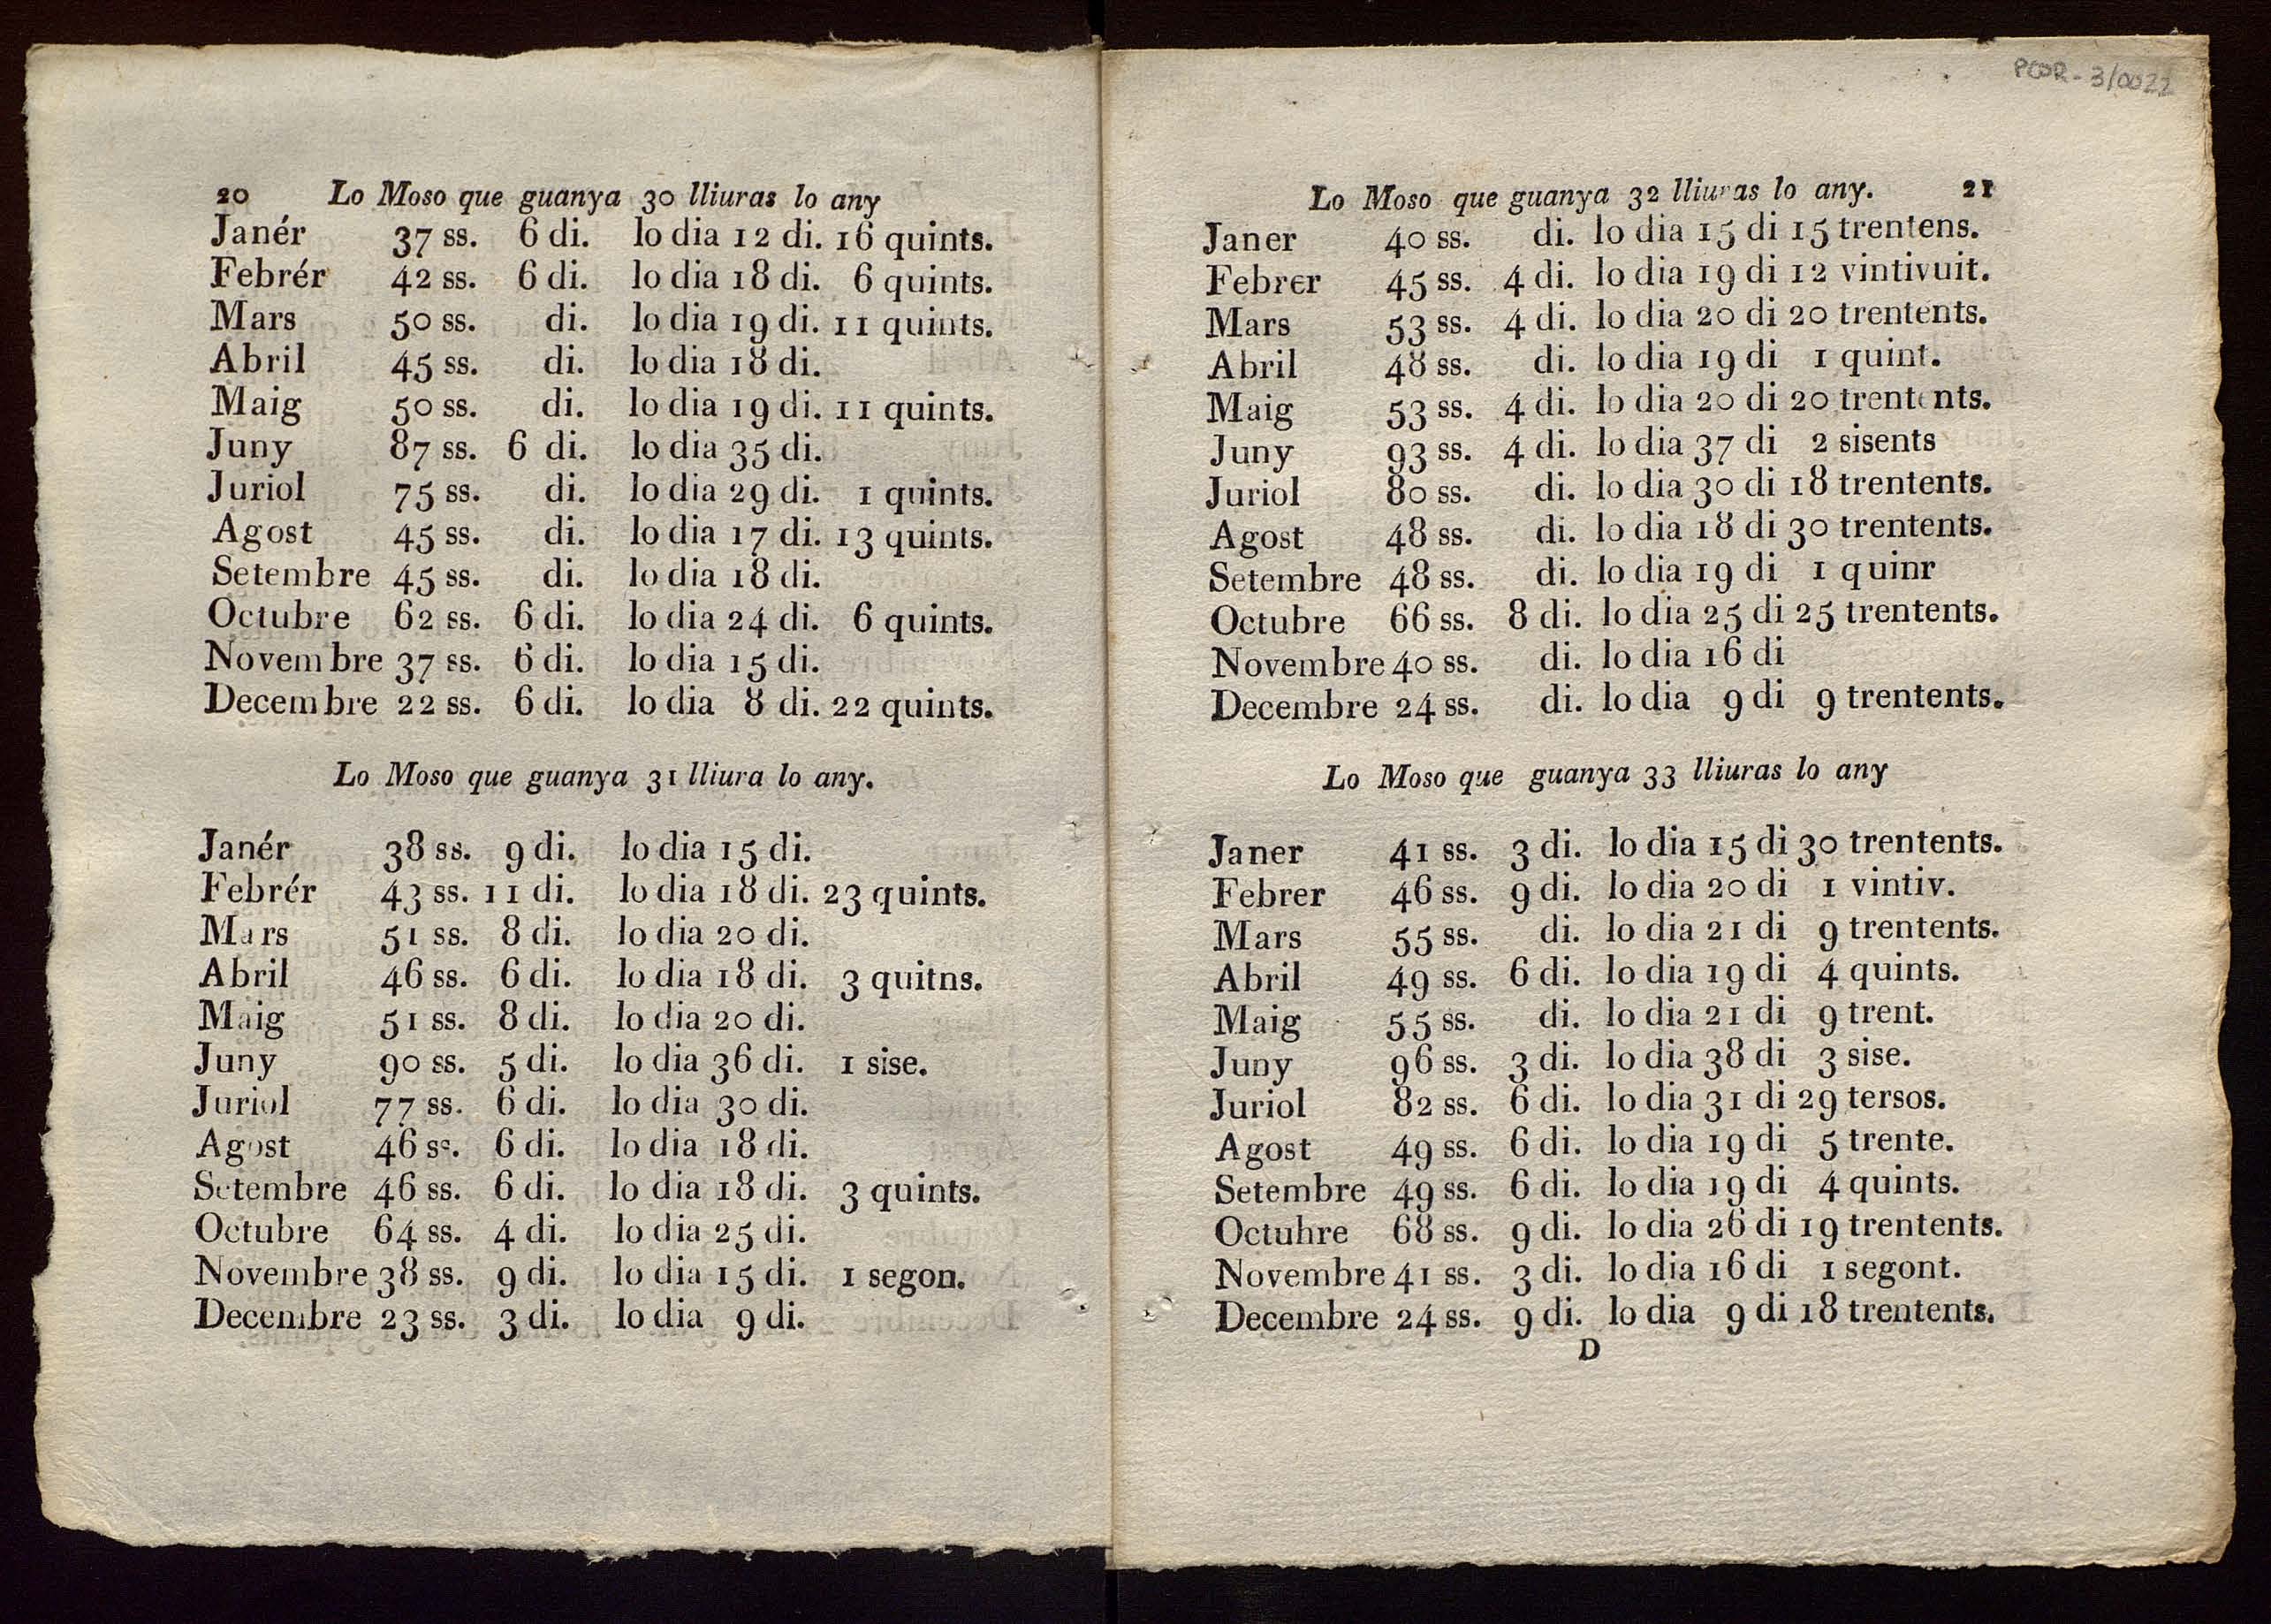 20 Lo Moso que guanya 30 lliuras lo any
Janér 37 ss. 6 di. lo dia 12 di. 16 quints.
Febrér 42 ss. 6 di. lo dia 18 di. 6 quints.
Mars 50 ss. di. lo dia 19 di. 11 quints.
Abril 45 ss. di. lo dia 18 di.
Maig 50 ss. di. lo dia 19 di. 11 quints.
Juny 87 ss. 6 di. lo dia 35 di.
Juriol 75 ss. di. lo dia 29 di. 1 quints.
Agost 45 ss. di. lo dia 17 di. 13 quints.
Setembre 45 ss. di. lo dia 18 di.
Octubre 62 ss. 6 di. lo dia 24 di. 6 quints.
Novembre 37 ss. 6 di. lo dia 15 di.
Decembre 22 ss. 6 di. lo dia 8 di. 22 quints.
Lo Moso que guanya 31 lliura lo any.
Janér 38 ss. 9 di. lo dia 15 di.
Febrér 43 ss. 11 di. lo dia 18 di. 23 quints.
Mars 51 ss. 8 di. lo dia 20 di.
Abril 46 ss. 6 di. lo dia 18 di. 3 quitns.
Maig 51 ss. 8 di. lo dia 20 di.
Juny 90 ss. 5 di. lo dia 36 di. 1 sise.
Juriol 77 ss. 6 di. lo dia 30 di.
Agost 46 ss. 6 di. lo dia 18 di.
Setembre 46 ss. 6 di. lo dia 18 di. 3 quints.
Octubre 64 ss. 4 di. lo dia 25 di.
Novembre 38 ss. 9 di. lo dia 15 di. 1 segon.
Decembre 23 ss. 3 di. lo dia 9 di.
PCOR-3/0022
Lo Moso que guanya 32 lliuras lo any. 21
Janer 40 ss. di. lo dia 15 di 15 trentens.
Febrer 45 ss. 4 di. lo dia 19 di 12 vintivuit.
Mars 53 ss. 4 di. lo dia 20 di 20 trentents.
Abril 48 ss. di. lo dia 19 di 1 quint.
Maig 53 ss. 4 di. lo dia 20 di 20 trentents.
Juny 93 ss. 4 di. lo dia 37 di 2 sisents
Juriol 80 ss. di. lo dia 30 di 18 trentents.
Agost 48 ss. di. lo dia 18 di 30 trentents.
Setembre 48 ss. di. lo dia 19 di 1 quinr
Octubre 66 ss. 8 di. lo dia 25 di 25 trentents.
Novembre 40 ss. di. lo dia 16 di
Decembre 24 ss. di. lo dia 9 di 9 trentents.
Lo Moso que guanya 33 lliuras lo any
Janer 41 ss. 3 di. lo dia 15 di 30 trentents.
Febrer 46 ss. 9 di. lo dia 20 di 1 vintiv.
Mars 55 ss. di. lo dia 21 di 9 trentents.
Abril 49 ss. 6 di. lo dia 19 di 4 quints.
Maig 55 ss. di. lo dia 21 di 9 trent.
Juny 96 ss. 3 di. lo dia 38 di 3 sise.
Juriol 82 ss. 6 di. lo dia 31 di 29 tersos.
Agost 49 ss. 6 di. lo dia 19 di 5 trente.
Setembre 49 ss. 6 di. lo dia 19 di 4 quints.
Octuhre 68 ss. 9 di. lo dia 26 di 19 trentents.
Novembre 41 ss. 3 di. lo dia 16 di 1 segont.
Decembre 24 ss. 9 di. lo dia 9 di 18 trentents.
D